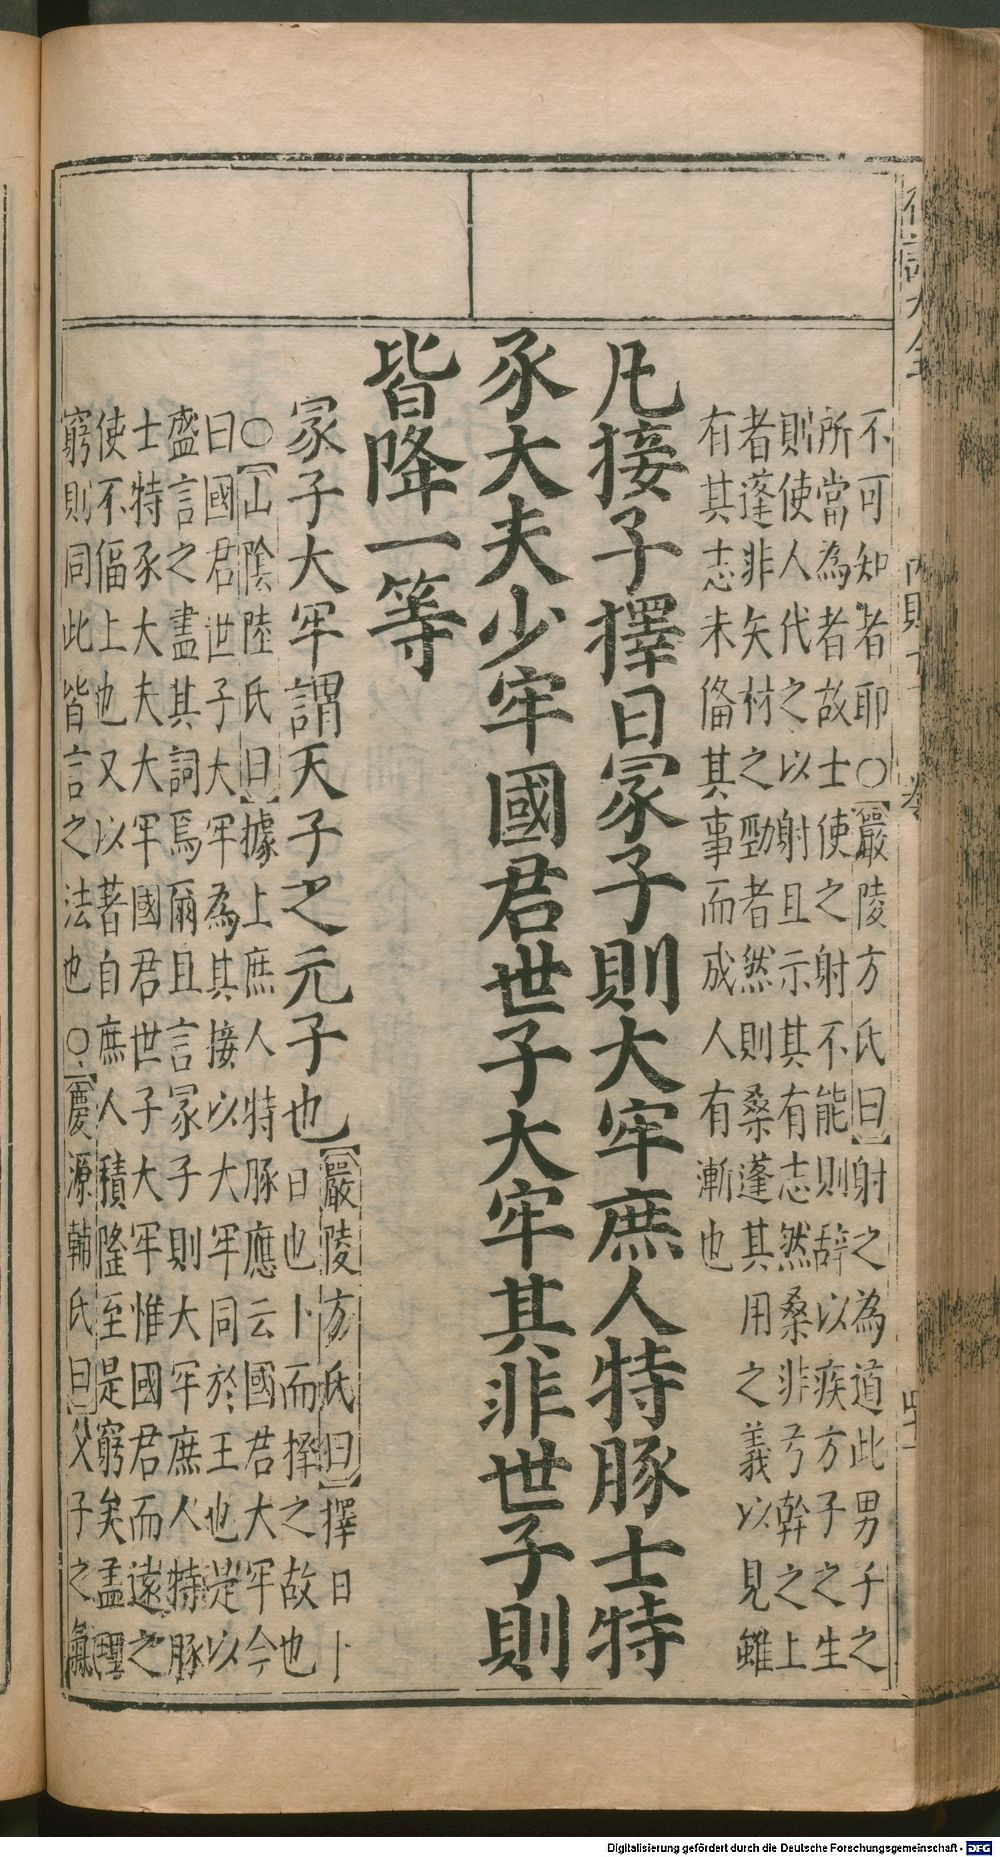 大全
不可知者耶○【嚴陵方氏曰】射之為道此男子之
所當為者故士使之射不能則辭以疾方子之生
則使人代之以射且示其有志然桑非弓幹之上
者蓬非矢材之勁者然則桑蓬其用之義以見雖
有其志未俻其事而成人有漸也
凡接子擇日冢子則大牢庶人特豚士特
豕大夫少牢國君世子大牢其非世子則
皆降一等
冢子大牢謂天子之元子也【嚴陵方氏曰】擇日卜
日也卜而擇之故也
○【山陰陸氏曰】據上庶人特豚應云國君大牢今
曰國君世子大牢為其接以大牢同於王也是以
盛言之盡其詞焉爾且言冢子則大牢庶人特豚
士特豕大夫大牢國君世子大牢惟國君而遠之
使不偪上也又以著自庶人積隆至是窮矣孟
窮則同此皆言之法也○【慶源輔氏曰】父子之氣
Digitalisierung gefördert durch die Deutsche Forschungsgemeinschaft - DFG